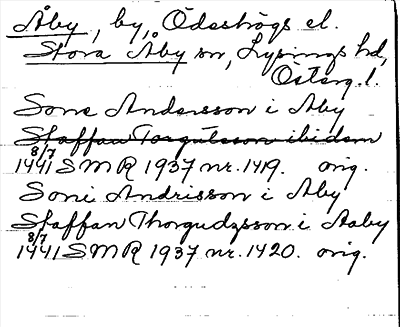 Åby, by, Ödeshögs el.
Stora Åby sn, Lysings hd,
Österg. l.
Sone Andersson i Aby
Staffan Torgutsson ibidem
8/7
1441 SMR 1937 nr. 1419. orig.
Soni Andrisson i Aby
Staffan Thorgudzsson i Aaby
8/7
1441 SMR 1937 nr. 1420. orig.